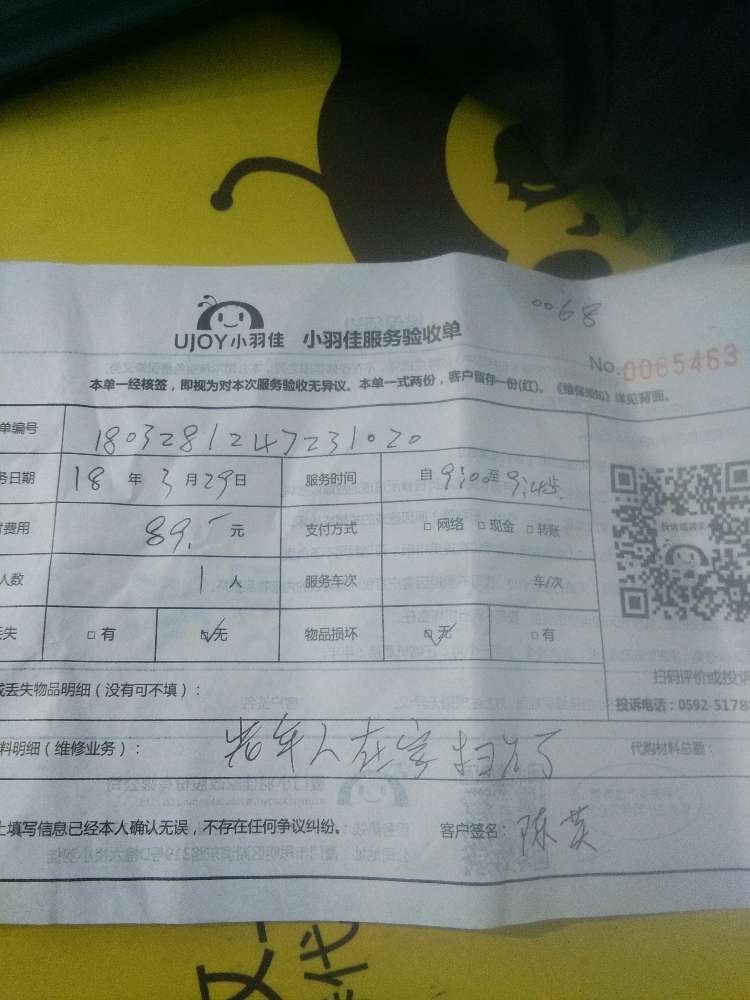 0068
UJOY小羽佳 小羽佳服务验收单
No.0065463
本单一经核签,即视为对本次服务验收无异议。本单一式两份,客户留存一份(红)。《维保须知》详见背面。
单编号 1803281247231020
务日期 18 年 3 月 29 日 服务时间 自 9:00 至 9:45
费用 89.- 元 支付方式 □ 网络 □ 现金 □ 转账
人数 1 人 服务车次 车/次
丢失 □ 有 ☑ 无 物品损坏 ☑ 无 □ 有
扫码评价或投诉
或丢失物品明细(没有可不填):
投诉电话:0592-5178
料明细(维修业务): 老年人在家 代购材料总额:
上填写信息已经本人确认无误,不存在任何争议纠纷。 客户签名: 陈英